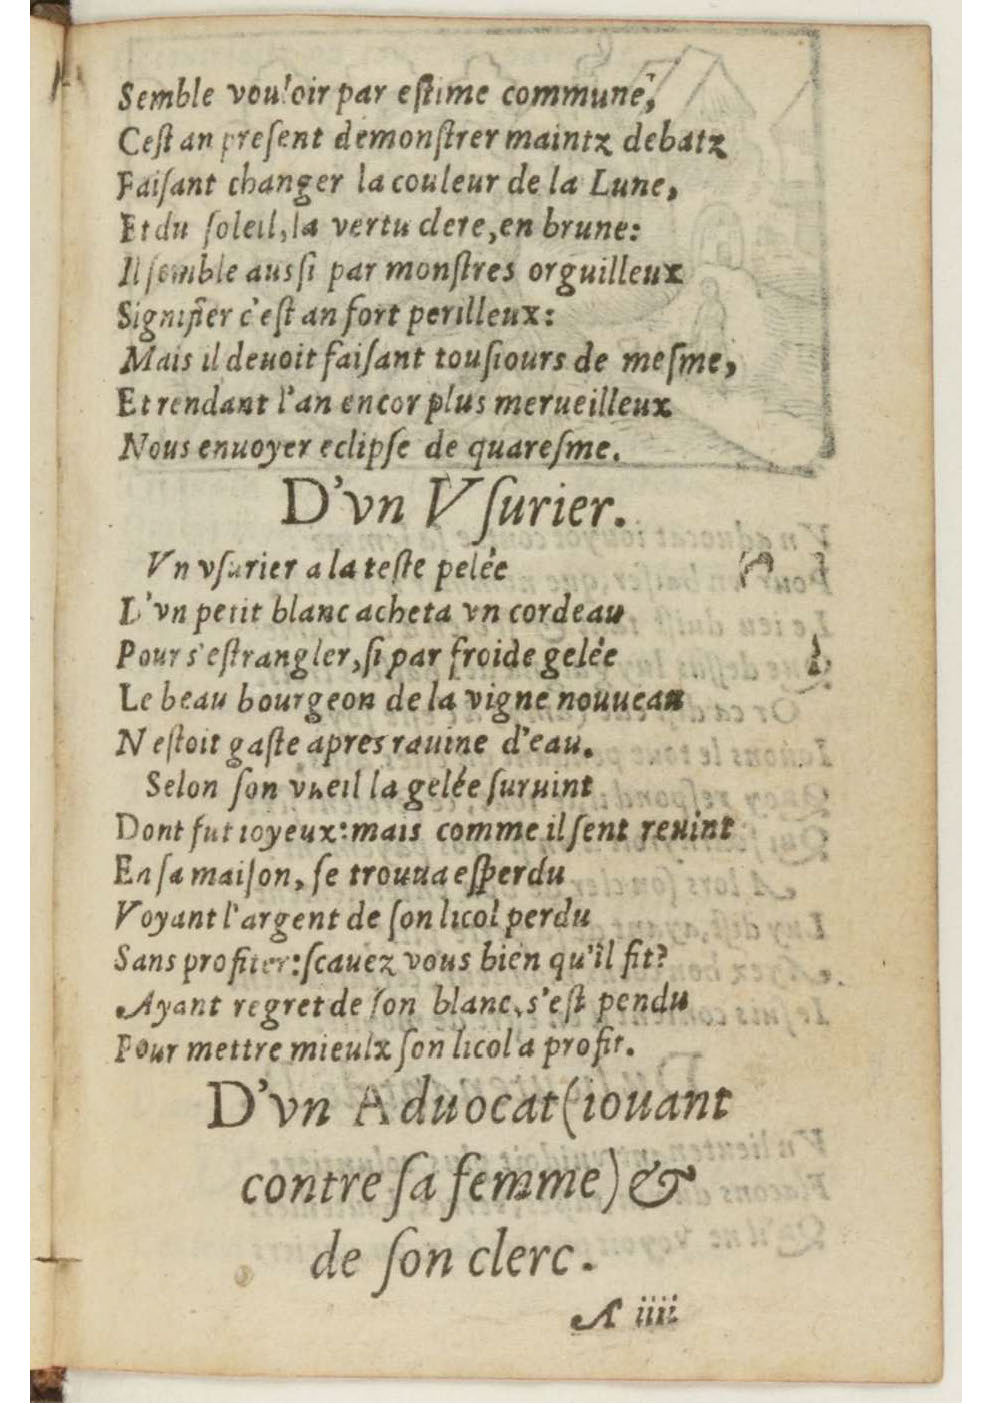 Semble vouloir par eſtime commune,
Ceſt an preſent demonſtrer maintz debatz
Faiſant changer la couleur de la Lune,
Et du ſoleil, la vertu clere, en brune:
Il ſemble auſſi par monſtres orguilleux
Signifier c'eſt an fort perilleux:
Mais il deuoit faiſant touſiours de meſme,
Et rendant l'an encor plus merueilleux
Nous enuoyer eclipſe de quareſme.
D'vn Vſurier.
Vn vſurier a la teſte pelée
D'vn petit blanc acheta vn cordeau
Pour s'eſtrangler, ſi par froide gelée
Le beau bourgeon de la vigne nouueau
N eſtoit gaſte apres rauine d'eau.
Selon ſon vueil la gelée ſuruint
Dont fut ioyeux: mais comme il ſent reuint
En ſa maiſon, ſe trouua eſperdu
Voyant l'argent de ſon licol perdu
Sans profiter: ſcauez vous bien qu'il fit?
Ayant regret de ſon blanc, s'eſt pendu
Pour mettre mieulx ſon licol a profit.
D'vn Aduocat (iouant
contre ſa femme) &
de ſon clerc.
A iiii